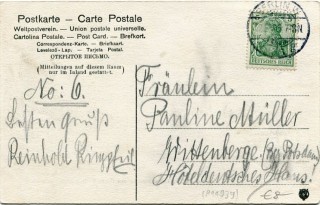 Postkarte — Carte Postale
Weltpostverein. — Union postale universelle.
Cartolina Postale. — Post Card. — Brefkort.
Correspondenz-Karte. — Briefkaart.
Levelező-Lap. — Tarjeta Postal.
ОТКРЫТОЕ ПИСЬМО.
(Mitteilungen auf diesem Raum
nur im Inland gestattet.)
No: 6.
Besten Gruß
Reinhold Ringpfeil
DEUTSCHES REICH
Fräulein
Pauline Müller
Wittenberge (Bz Potsdam)
Hotel deutsches Haus!